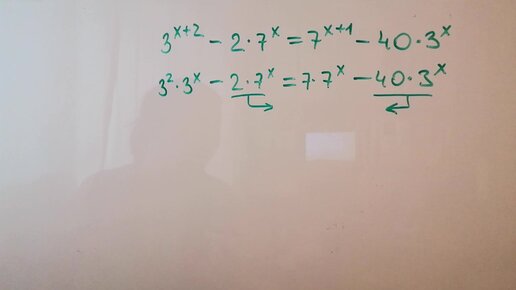 3^{x+2} - 2·7^x = 7^{x+1} - 40·3^x
3^2·3^x - 2·7^x = 7·7^x - 40·3^x